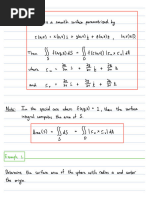 is a smooth surface parametrized by
r(u,v) = x(u,v) i + y(u,v) j + z(u,v) k
Then ∬ f(x,y,z) dS = ∬ f(r(u,v)) |r_u × r_v| dA
where r_u = ∂x/∂u i + ∂y/∂u j + ∂z/∂u k
and r_v = ∂x/∂v i + ∂y/∂v j + ∂z/∂v k
Note: In the special case where f(x,y,z) = 1, then the surface
integral computes the area of S.
Area(S) = ∬ dS = ∬ |r_u × r_v| dA
Example 1
Determine the surface area of the sphere with radius a and center
the origin.